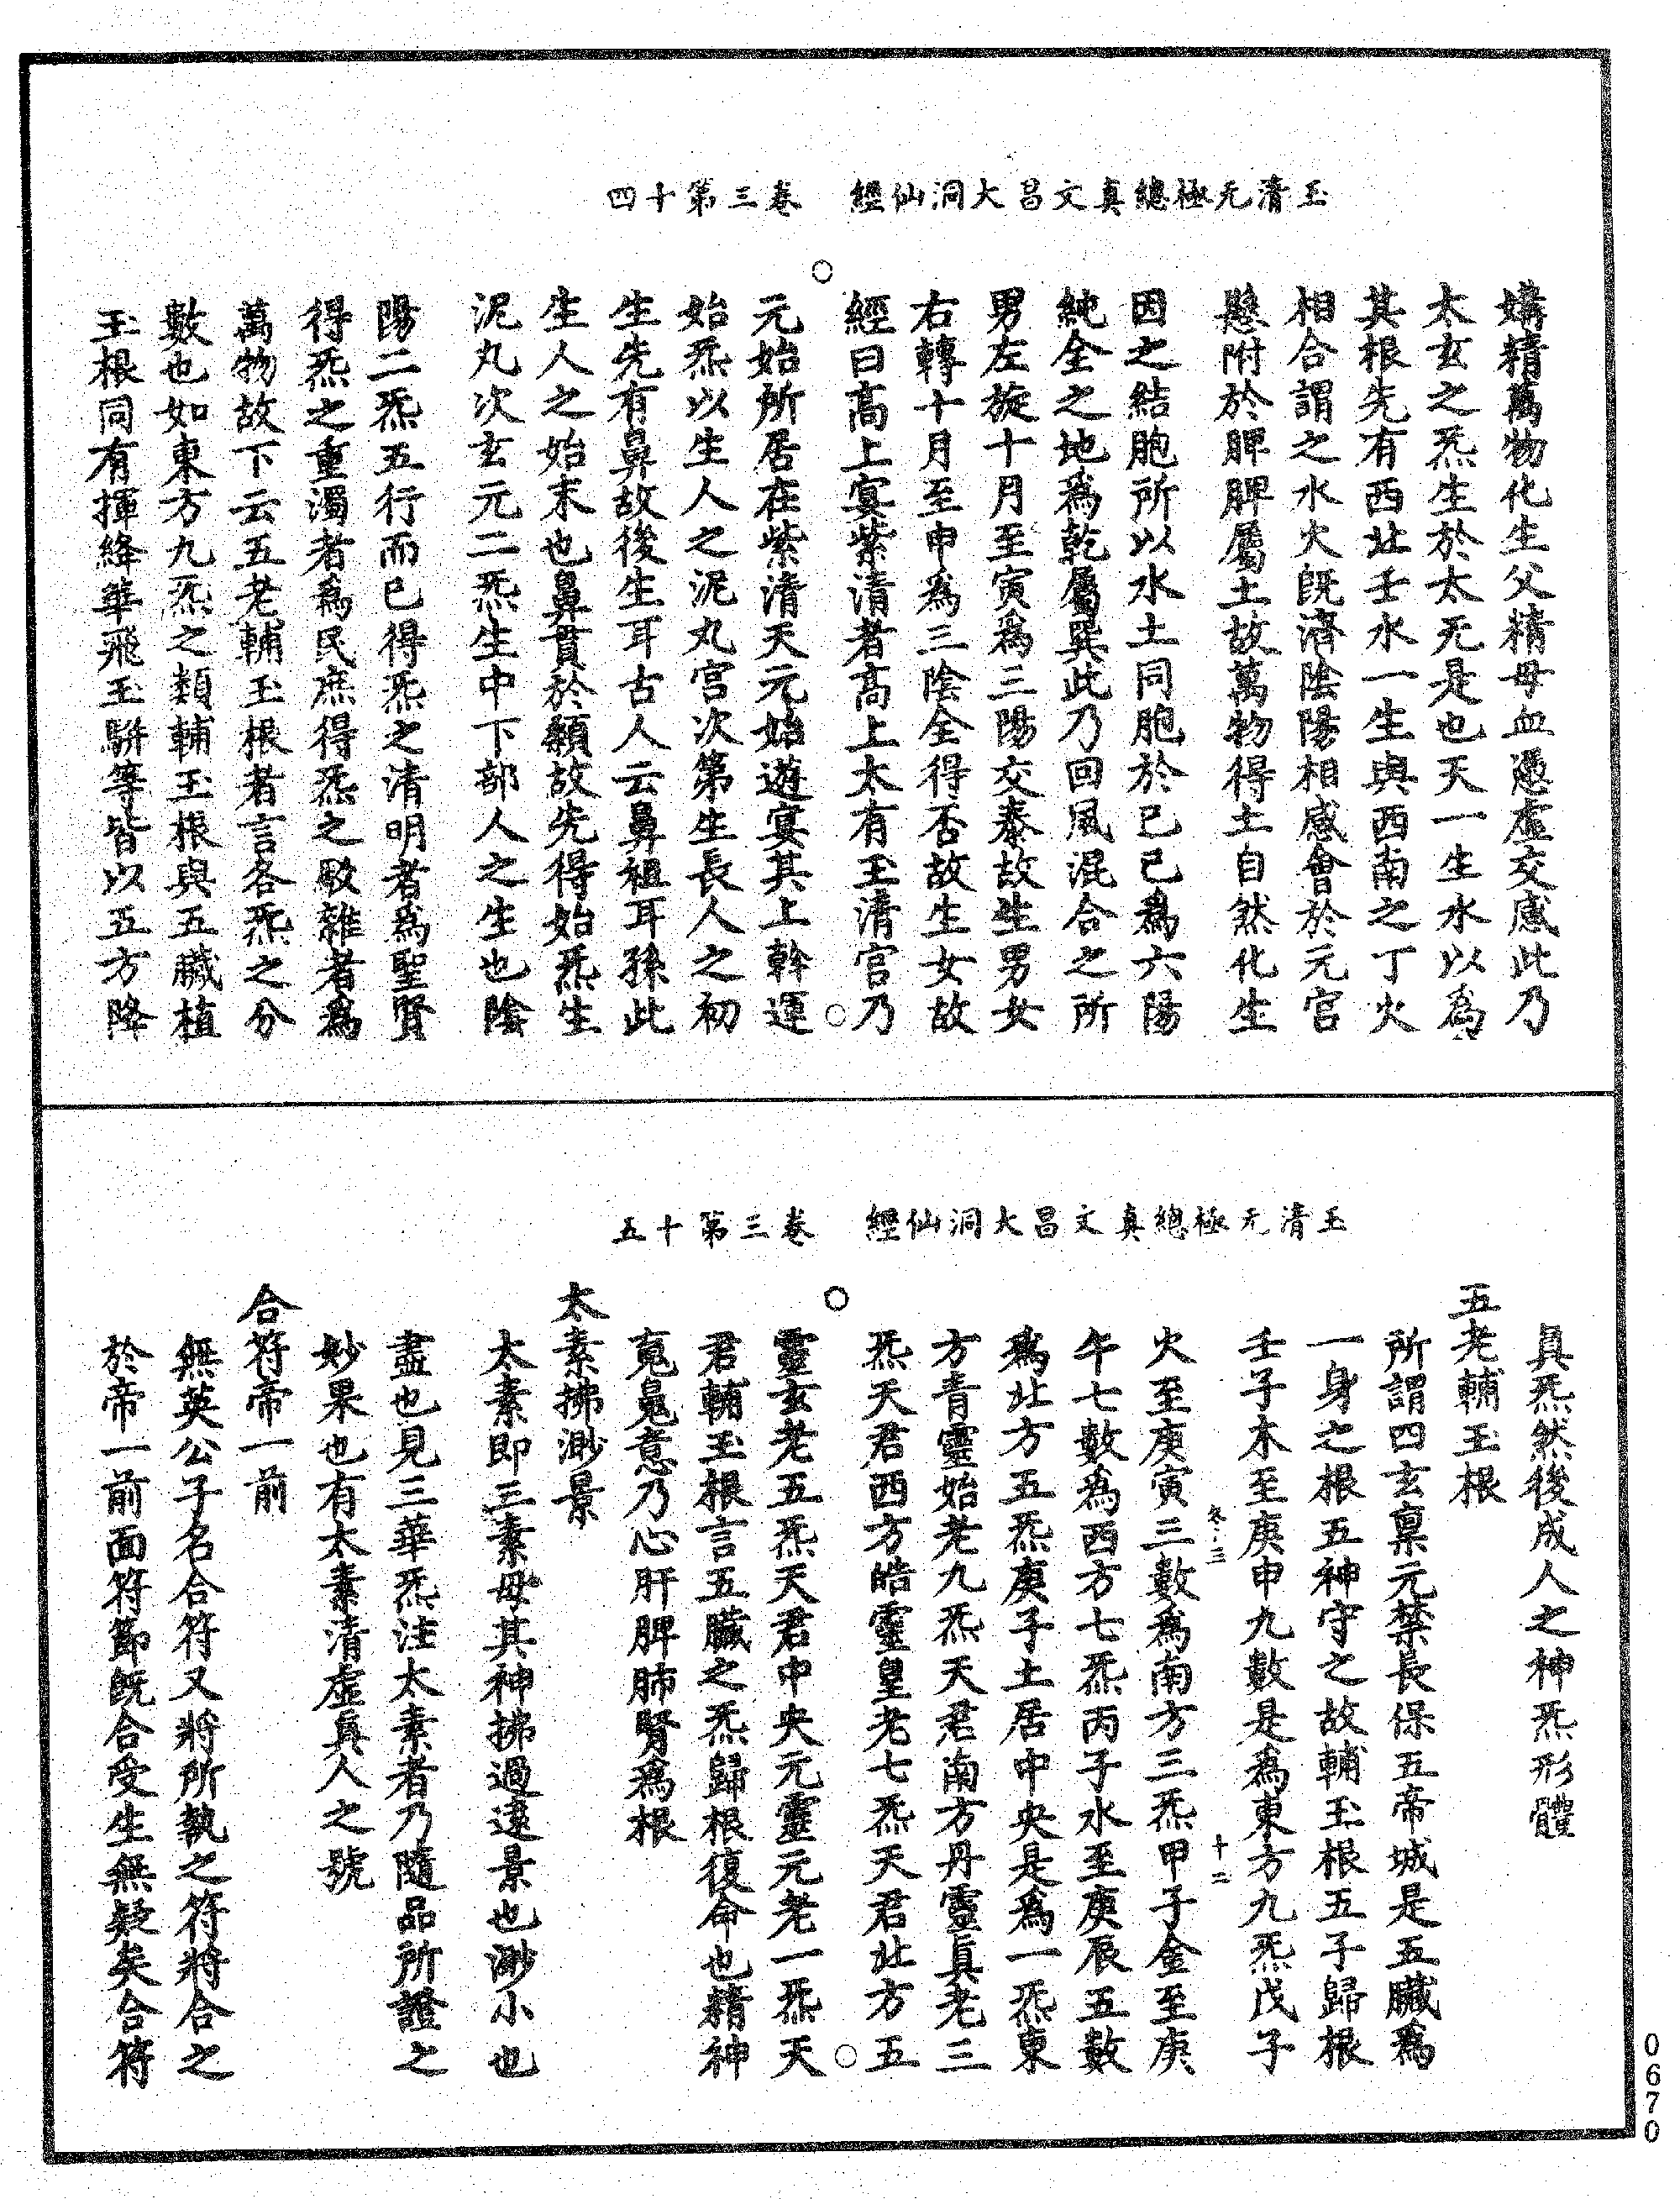 玉清无極總真文昌大洞仙經　卷三第十四
媾精萬物化生父精母血慿虛交感此乃
太玄之炁生於太无是也天一生水以為
其根先有西北壬水一生與西南之丁火
相合謂之水火旣濟陰陽相感會於元宮
懸附於脾脾屬土故萬物得土自然化生
因之結胞所以水土同胞於巳巳為六陽
純全之地為乾屬巽此乃回風混合之所
男左旋十月至寅為三陽交泰故生男女
右轉十月至申為三陰全得否故生女故
經曰高上宴紫清者高上太有玉清宮乃
元始所居在紫清天元始遊宴其上幹運
始炁以生人之泥丸宮次第生長人之初
生先有鼻故後生耳古人云鼻祖耳孫此
生人之始末也鼻貫於顙故先得始炁生
泥丸次玄元二炁生中下部人之生也陰
陽二炁五行而已得炁之清明者為聖賢
得炁之重濁者為民庶得炁之駁雜者為
萬物故下云五老輔玉根者言各炁之分
數也如東方九炁之類輔玉根與五臟植
玉根同有揮絳華飛玉駢等皆以五方降
玉清无極總真文昌大洞仙經　卷三第十五
真炁然後成人之神炁形體
五老輔玉根
所謂四玄稟元禁長保五帝城是五臟為
一身之根五神守之故輔玉根五子歸根
壬子木至庚申九數是為東方九炁戊子
卷三　十二
火至庚寅三數為南方三炁甲子金至庚
午七數為西方七炁丙子水至庚辰五數
為北方五炁庚子土居中央是為一炁東
方青靈始老九炁天君南方丹靈真老三
炁天君西方皓靈皇老七炁天君北方五
靈玄老五炁天君中央元靈元老一炁天
君輔玉根言五臟之炁歸根復命也精神
䰟䰟意乃心肝脾肺腎為根
太素拂渺景
太素即三素母其神拂過遠景也渺小也
盡也見三華炁注太素者乃隨品所證之
妙果也有太素清虛真人之號
合符帝一前
無英公子名合符又將所執之符將合之
於帝一前面符節旣合受生無疑矣合符
0670